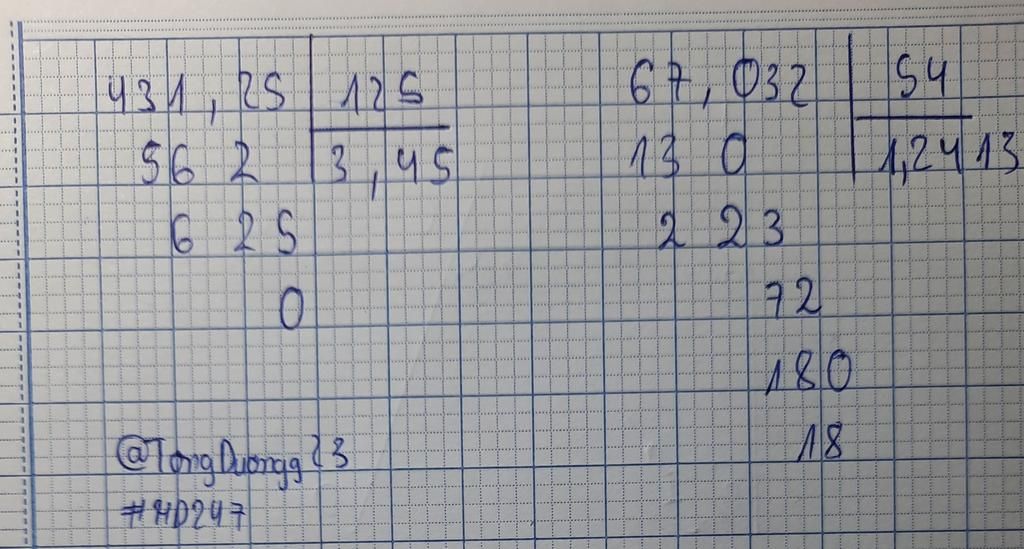 431,25 125
562 3,45
625
0
67,032 54
130 1,2413
223
72
180
18
@TongDuongg23
#HD247